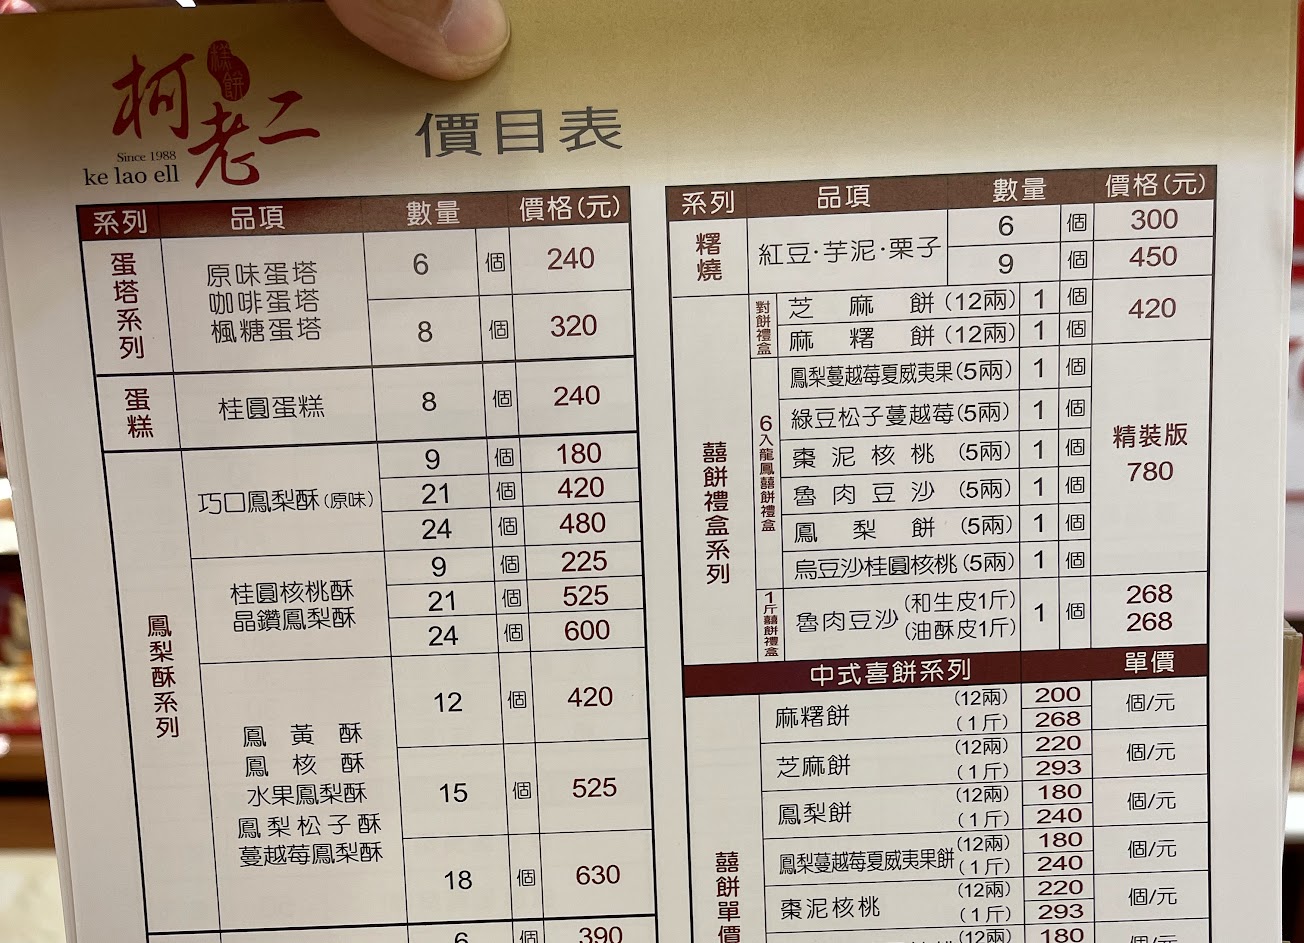 柯老二
糕餅
Since 1988
ke lao ell
價目表
系列 品項 數量 價格(元)
蛋塔系列
原味蛋塔
咖啡蛋塔
楓糖蛋塔
6 個 240
8 個 320
蛋糕 桂圓蛋糕 8 個 240
鳳梨酥系列
巧口鳳梨酥(原味)
9 個 180
21 個 420
24 個 480
桂圓核桃酥
晶鑽鳳梨酥
9 個 225
21 個 525
24 個 600
鳳黃酥
鳳核酥
水果鳳梨酥
鳳梨松子酥
蔓越莓鳳梨酥
12 個 420
15 個 525
18 個 630
6 個 390
系列 品項 數量 價格(元)
糬燒 紅豆·芋泥·栗子
6 個 300
9 個 450
囍餅禮盒系列
對餅禮盒
芝麻餅(12兩) 1 個
麻糬餅(12兩) 1 個
420
6入龍鳳囍餅禮盒
鳳梨蔓越莓夏威夷果(5兩) 1 個
綠豆松子蔓越莓(5兩) 1 個
棗泥核桃(5兩) 1 個
魯肉豆沙(5兩) 1 個
鳳梨餅(5兩) 1 個
烏豆沙桂圓核桃(5兩) 1 個
精裝版
780
1斤囍餅禮盒
魯肉豆沙(和生皮1斤)
(油酥皮1斤)
1 個
268
268
中式喜餅系列 單價
囍餅單價
麻糬餅 (12兩) 200 個/元
(1斤) 268
芝麻餅 (12兩) 220 個/元
(1斤) 293
鳳梨餅 (12兩) 180 個/元
(1斤) 240
鳳梨蔓越莓夏威夷果餅 (12兩) 180 個/元
(1斤) 240
棗泥核桃 (12兩) 220 個/元
(1斤) 293
(12兩) 180 個/元